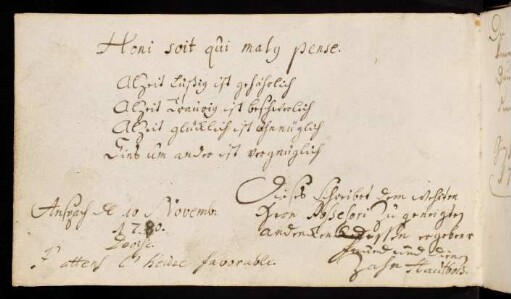 Honi soit qui maly pense.
Alzeit lustig ist gefährlich
Alzeit Traurig ist beschwerlich
Alzeit glücklich ist ohnmüglich
Eins um ander ist vergnüglich
Anspach d. 10 Novemb.
1780.
J'attens l'heure favorable.
Dieses schreibet dem
Herrn Possessori zu geneigten
andencken